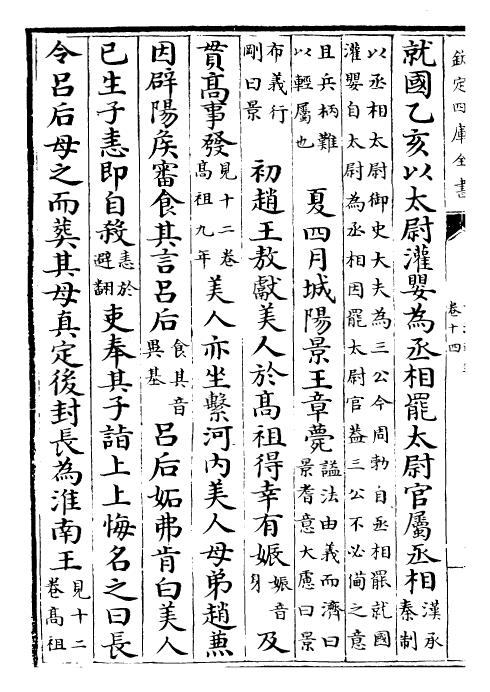 欽定四庫全書
卷十四
就國乙亥以太尉灌嬰為丞相罷太尉官屬丞相漢承
秦制
以丞相太尉御史大夫為三公今周勃自丞相罷就國
灌嬰自太尉為丞相因罷太尉官葢三公不必備之意
且兵柄難
以輕屬也
夏四月城陽景王章薨諡法由義而濟曰
景耆意大慮曰景
布義行
剛曰景
初趙王敖獻美人於髙祖得幸有娠娠音
身
及
貫髙事發見十二卷
髙祖九年
美人亦坐繫河内美人母弟趙兼
因辟陽侯審食其言吕后食其音
異基
吕后妬弗肯白美人
已生子恚即自殺恚於
避翻
吏奉其子詣上上悔名之曰長
令吕后母之而葬其母真定後封長為淮南王見十二
卷髙祖